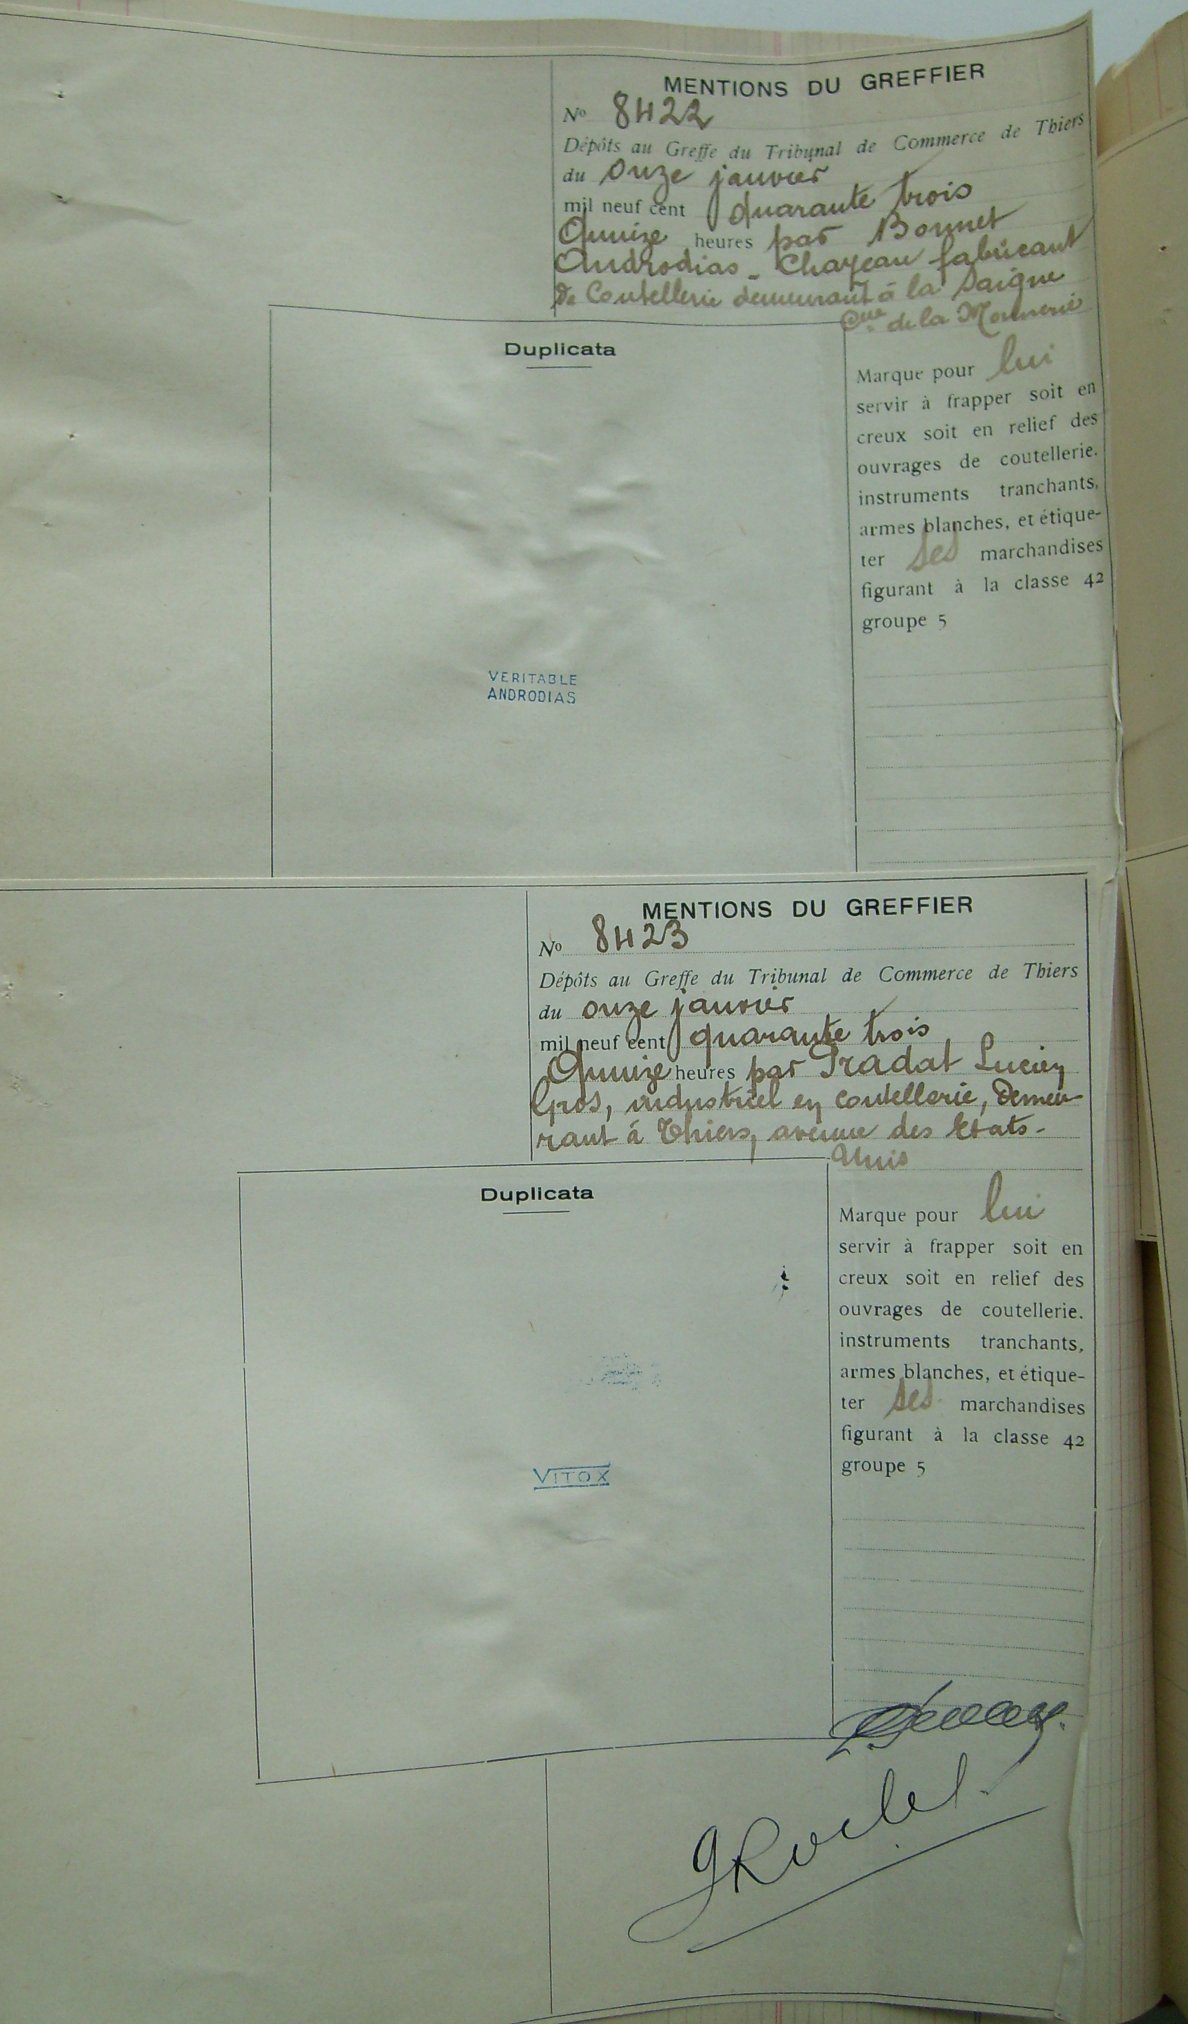 MENTIONS DU GREFFIER
No 8422
Dépôts au Greffe du Tribunal de Commerce de Thiers
du onze janvier
mil neuf cent quarante trois
Quinze heures par Bonnet
Androdias - Chazeau fabricant
de Coutellerie demeurant à la Saigne
Cne de la Monnerie
Duplicata
Marque pour lui
servir à frapper soit en
creux soit en relief des
ouvrages de coutellerie.
instruments tranchants,
armes blanches, et étique-
ter ses marchandises
figurant à la classe 42
groupe 5
VERITABLE
ANDRODIAS
MENTIONS DU GREFFIER
No 8423
Dépôts au Greffe du Tribunal de Commerce de Thiers
du onze janvier
mil neuf cent quarante trois
Quinze heures par Pradat Lucien
Gros, industriel en coutellerie, demeu-
rant à Thiers, avenue des Etats-
Unis
Duplicata
Marque pour lui
servir à frapper soit en
creux soit en relief des
ouvrages de coutellerie.
instruments tranchants,
armes blanches, et étique-
ter ses marchandises
figurant à la classe 42
groupe 5
VITOX